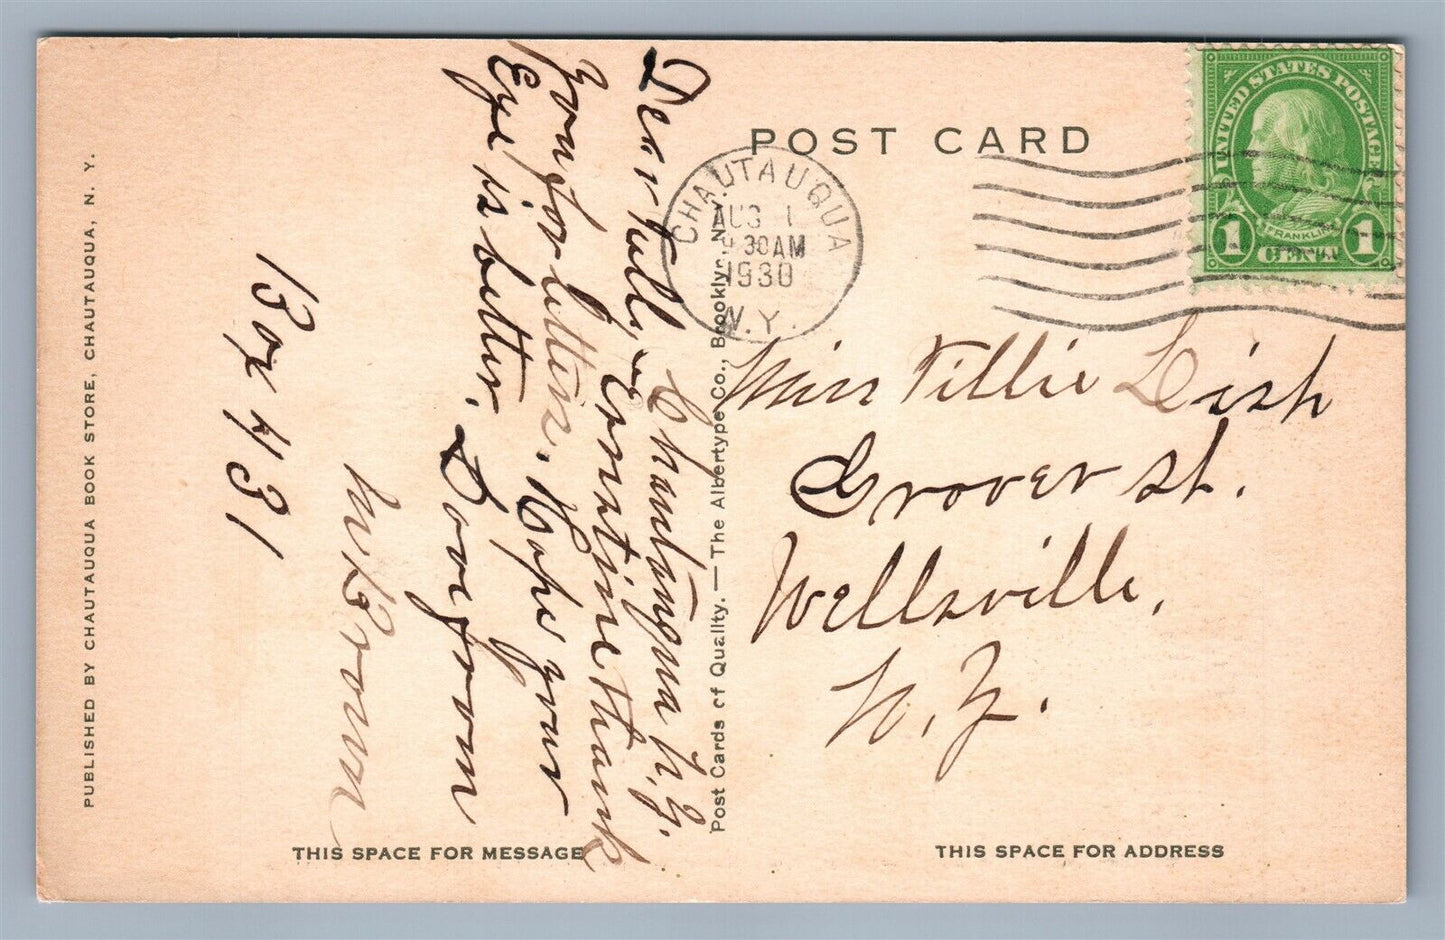 POST CARD
UNITED STATES POSTAGE
FRANKLIN
1 CENT 1
CHAUTAUQUA
AUG 1
30AM
1930
N.Y.
Miss Tillie Lish
Grover st.
Wellsville,
N.Y.
Chautauqua N.Y.
Dear Till,
thank
you for letter. Hope your
Eye is better. Love from
Brown
Box 431
PUBLISHED BY CHAUTAUQUA BOOK STORE, CHAUTAUQUA, N. Y.
Post Cards of Quality. — The Albertype Co., Brooklyn, N.Y.
THIS SPACE FOR MESSAGE
THIS SPACE FOR ADDRESS